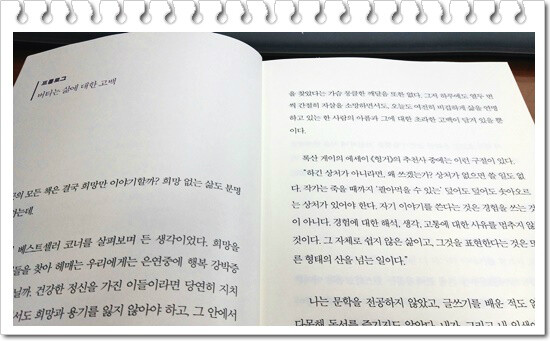 프롤로그
버티는 삶에 대한 고백
모든 책은 결국 희망만 이야기할까? 희망 없는 삶도 분명
베스트셀러 코너를 살펴보며 든 생각이었다. 희망을
들을 찾아 헤매는 우리에게는 은연중에 행복 강박증
닐까. 건강한 정신을 가진 이들이라면 당연히 지치
서도 희망과 용기를 잃지 않아야 하고, 그 안에서
을 찾았다는 가슴 뭉클한 깨달음 또한 없다. 그저 하루에도 열두 번
씩 간절히 자살을 소망하면서도, 오늘도 여전히 비겁하게 삶을 연명
하고 있는 한 사람의 아픔과 그에 대한 초라한 고백이 담겨 있을 뿐
이다.
록산 게이의 에세이 《헝거》의 추천사 중에는 이런 구절이 있다.
“하긴 상처가 아니라면, 왜 쓰겠는가? 상처가 없으면 쓸 일도 없
다. 작가는 죽을 때까지 ‘팔아먹을 수 있는’ 덮어도 덮어도 솟아오르
는 상처가 있어야 한다. 자기 이야기를 쓴다는 것은 경험을 쓰는 것
이 아니다. 경험에 대한 해석, 생각, 고통에 대한 사유를 멈추지 않
것이다. 그 자체로 쉽지 않은 삶이고, 그것을 표현한다는 것은
른 형태의 산을 넘는 일이다.”
나는 문학을 전공하지 않았고, 글쓰기를 배운 적도
다못해 독서를 즐기지도 않았다.